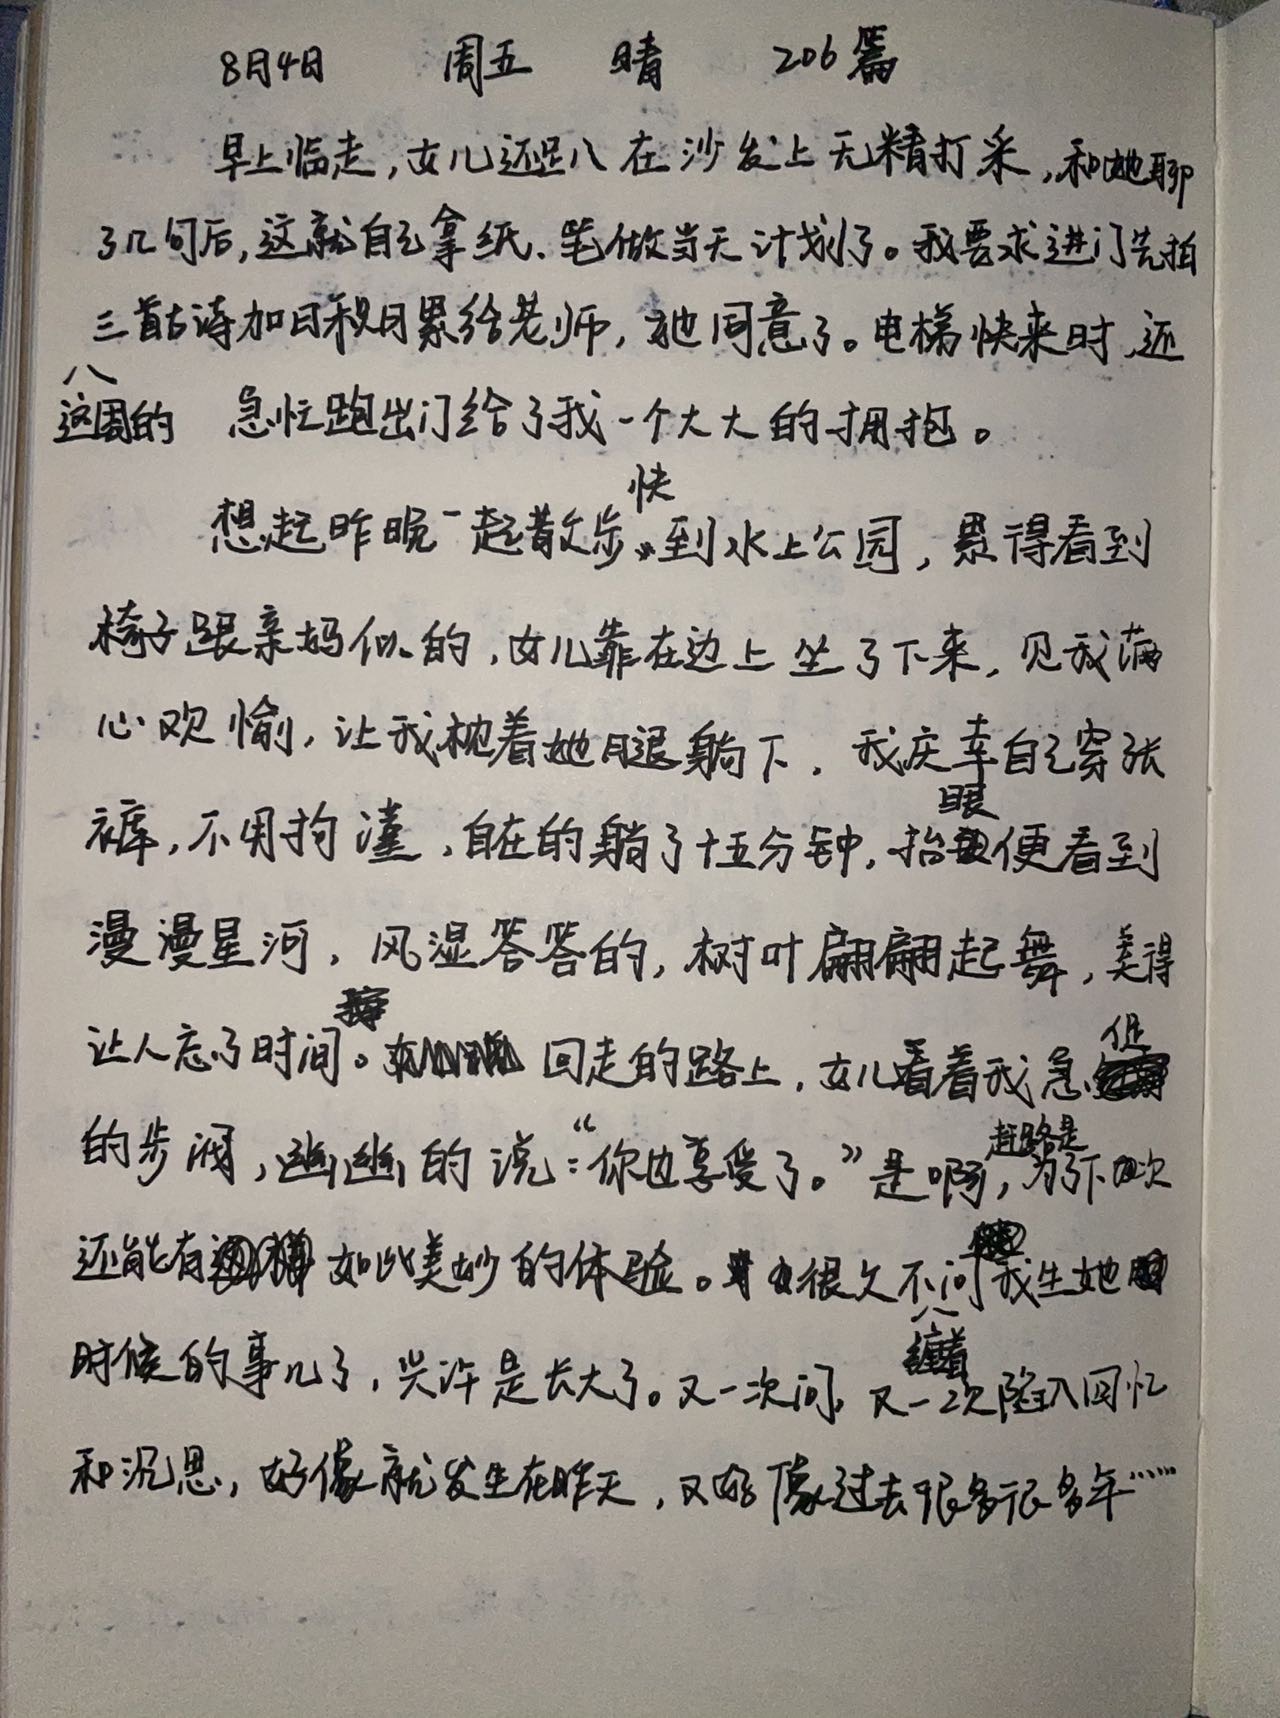 8月4日 周五 晴 206篇
早上临走,女儿还趴在沙发上无精打采,和她聊
了几句后,这就自己拿纸、笔做当天计划了。我要求进门先拍
三首古诗加日积月累给老师,她同意了。电梯快来时,还
这周的
急忙跑出门给了我一个大大的拥抱。
快
想起昨晚一起散步,到水上公园,累得看到
椅子跟亲妈似的,女儿靠在边上坐了下来,见我满
心欢愉,让我枕着她腿躺下,我庆幸自己穿张
眼
裤,不用拘谨,自在的躺了十五分钟,抬便看到
漫漫星河,风湿答答的,树叶翩翩起舞,美得
让人忘了时间。回走的路上,女儿看着我急
促
的步调,幽幽的说:“你也享受了。”是啊,为了下次
赶路是
还能有如此美妙的体验。也很久不问我生她
缠着
时候的事儿了,兴许是长大了。又一次问,又一次陷入回忆
和沉思,好像就发生在昨天,又好像过去很多很多年……